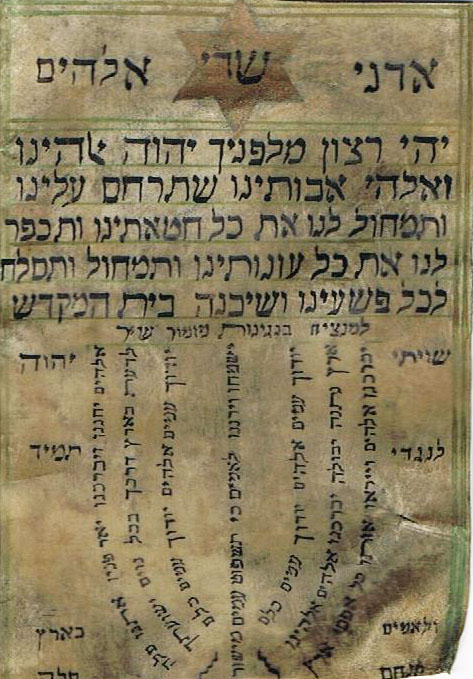 אדני שדי אלהים
יהי רצון מלפניך יהוה אלהינו
ואלהי אבותינו שתרחם עלינו
ותמחול לנו את כל חטאתינו ותכפר
לנו את כל עונותינו ותמחול ותסלח
לכל פשעינו ושיכנה בית המקדש
למנציח בנגינות מזמור שיר
שויתי יהוה
לנגדי תמיד
ולאמים בארץ
תנחם סלה
יברכנו אלהים וייראו אותו כל אפסי ארץ
ארץ נתנה יבולה יברכנו אלהים אלהינו
יודוך עמים אלהים יודוך עמים כלם
ישמחו וירננו לאמים כי תשפוט עמים מישור
יודוך עמים אלהים יודוך עמים כלם
לדעת בארץ דרכך בכל גוים ישועתך
אלהים יחננו ויברכנו יאר פניו אתנו סלה